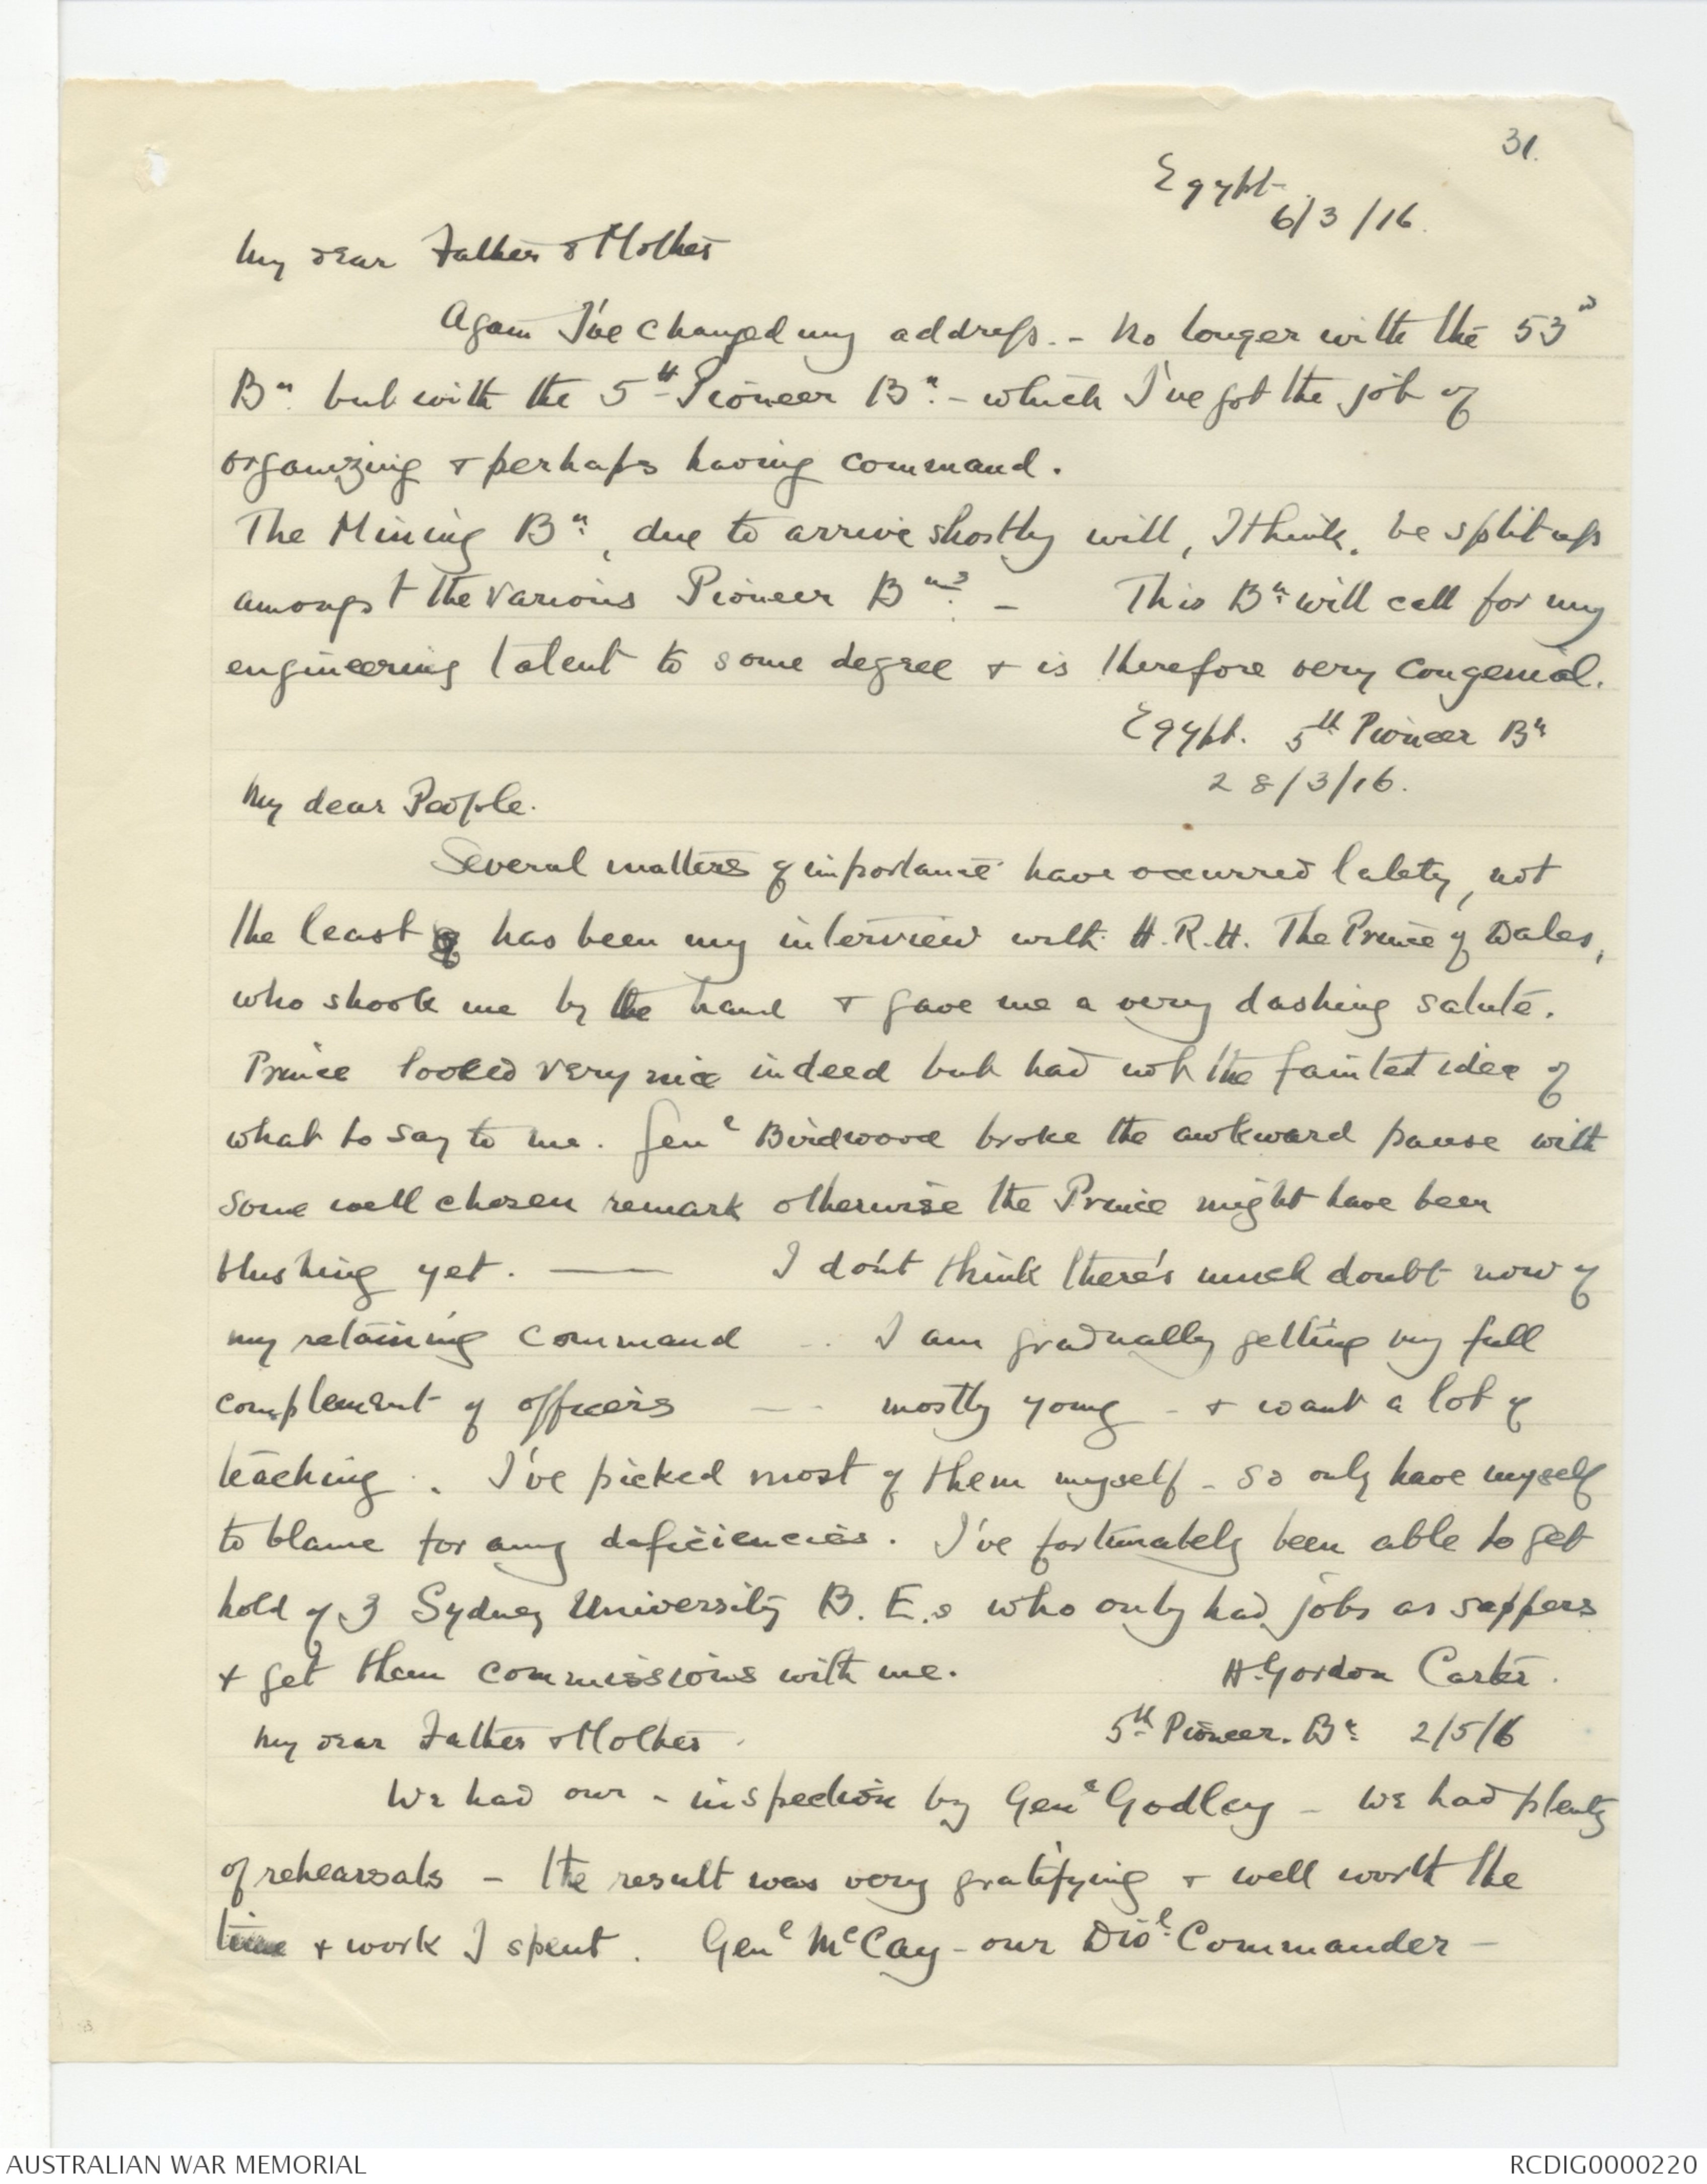 31.
Egypt
6/3/16.
My dear Father & Mother
Again I've changed my address. - No longer with the 53rd
Bn. but with the 5th Pioneer Bn. - which I've got the job of
organizing & perhaps having command.
The Mining Bn., due to arrive shortly will, I think, be split up
amongst the various Pioneer Bns. - This Bn. will call for my
engineering talent to some degree & is therefore very congenial.
Egypt. 5th Pioneer Bn
28/3/16.
My dear People.
Several matters of importance have occurred lately, not
the least has been my interview with H.R.H. The Prince of Wales,
who shook me by the hand & gave me a very dashing salute.
Prince looked very nice indeed but had not the faintest idea of
what to say to me. Genl Birdwood broke the awkward pause with
some well chosen remark otherwise the Prince might have been
blushing yet. —— I don't think there's much doubt now of
my retaining command - . I am gradually getting my full
complement of officers — - mostly young - & want a lot of
teaching. I've picked most of them myself - so only have myself
to blame for any deficiencies. I've fortunately been able to get
hold of 3 Sydney University B.E.s who only had jobs as sappers
& get them commissions with me. H. Gordon Carter.
My dear Father & Mother. 5th Pioneer. Bn. 2/5/16
We had our - inspection by Genl Godley - We had plenty
of rehearsals - the result was very gratifying & well worth the
time & work I spent. Genl McCay - our Divl. Commander -
AUSTRALIAN WAR MEMORIAL
RCDIG0000220